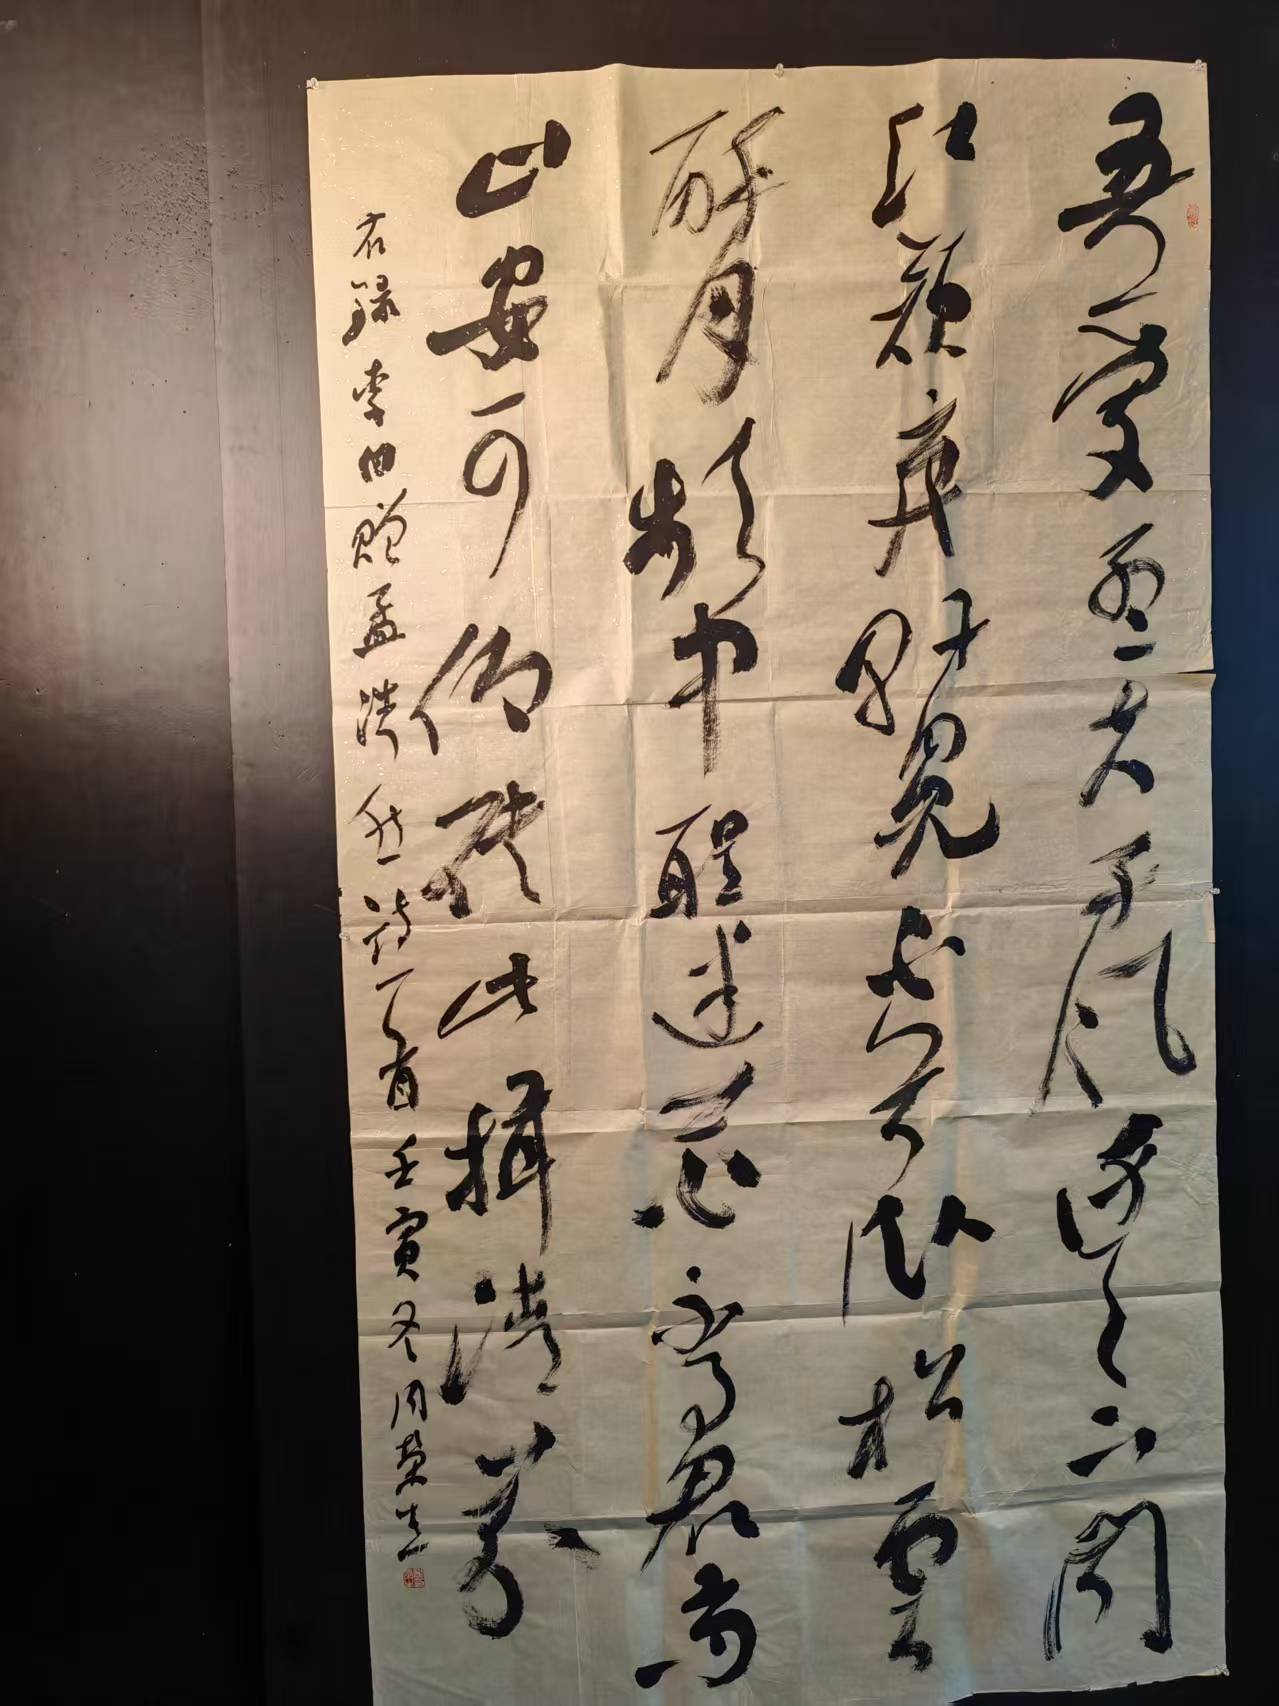 吾爱孟夫子风流天下闻
红颜弃轩冕白首卧松云
醉月频中圣迷花不事君高
山安可仰徒此揖清芬
右录李白赠孟浩然诗一首壬寅冬周荣生